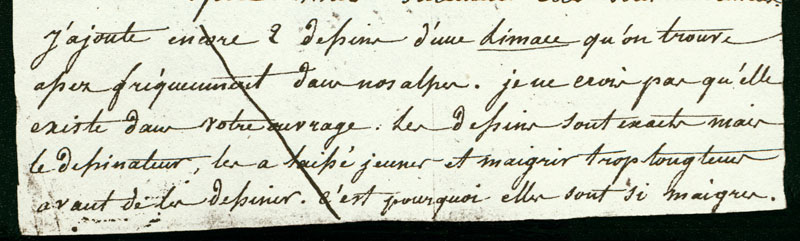 j'ajoute encore 2 dessins d'une limace qu'on trouve
assez fréquemment dans nos alpes. je ne crois pas qu'elle
existe dans votre ouvrage. les dessins sont exacts mais
le dessinateur, les a laissé jeuner et maigrir trop longtems
avant de les dessiner. c'est pourquoi elles sont si maigres.